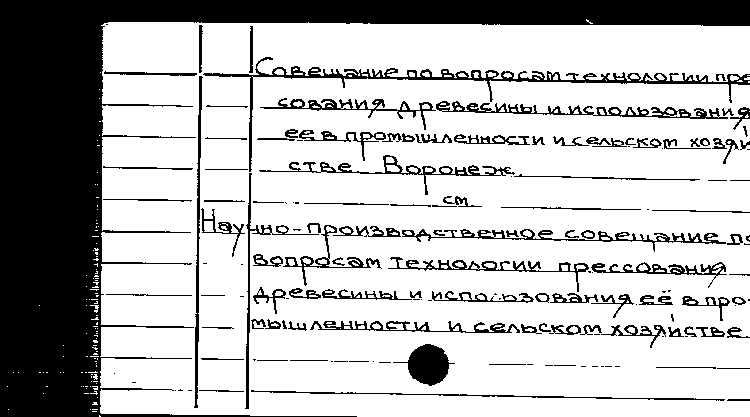 Совещание по вопросам технологии прес
сования древесины и использования
ее в промышленности и сельском хозяй
стве. Воронеж.
см.
Научно-производственное совещание по
вопросам технологии прессования
древесины и использования её в про-
мышленности и сельском хозяйстве